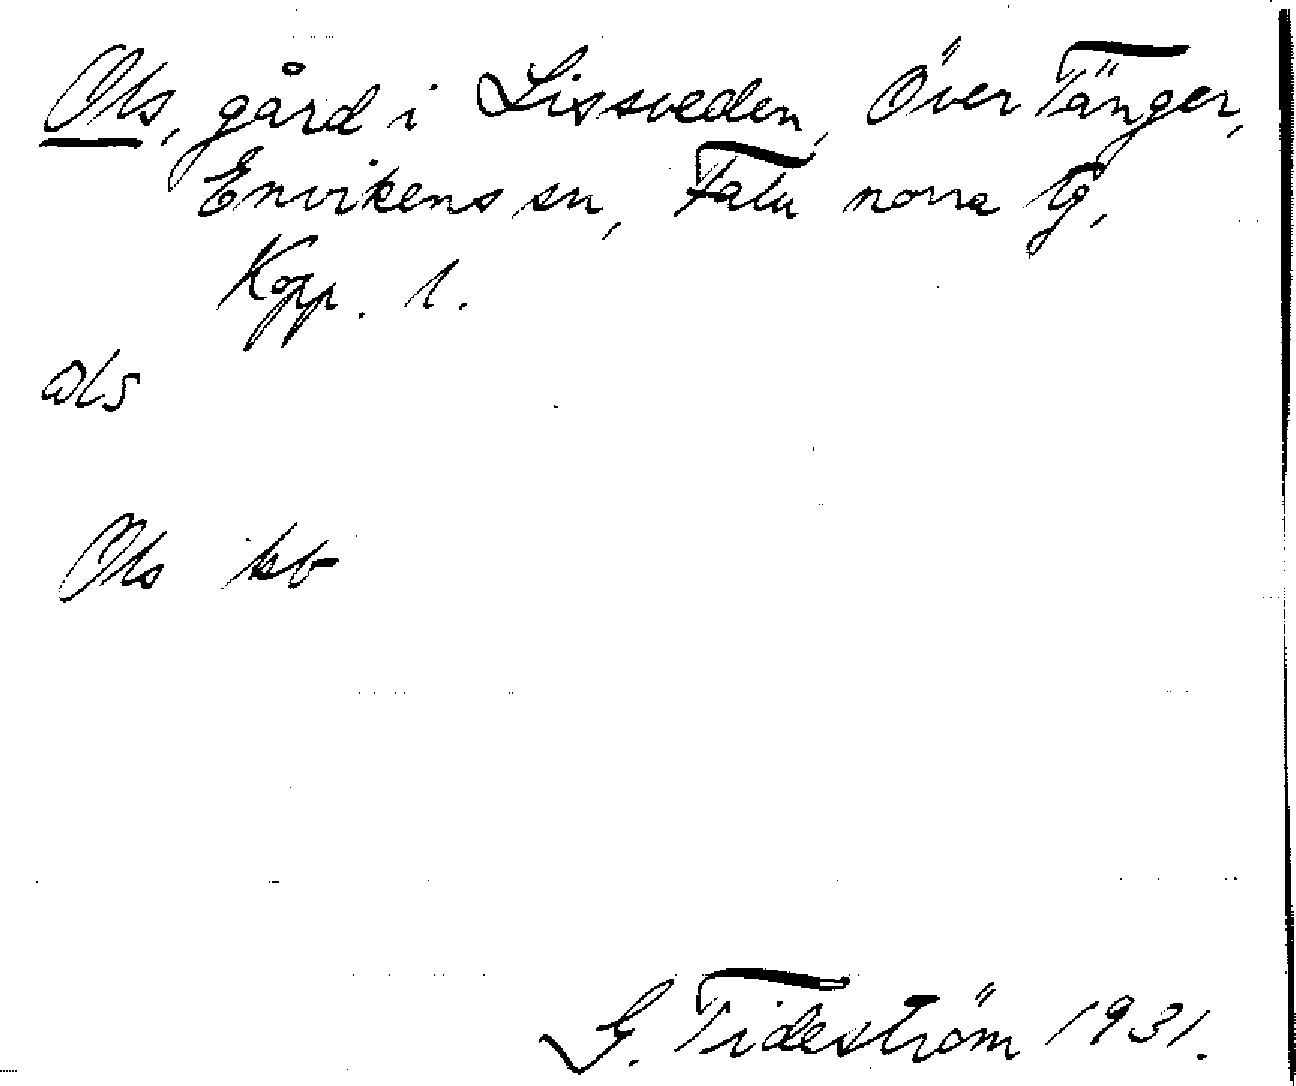 Ols, gård i Lissveden, Över Tänger,
Envikens sn, Falu norra tg,
Kopp. l.
ɷls
Ols kb
G. Tideström 1931.